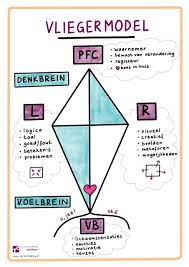 VLIEGERMODEL
PFC
• waarnemer
• bewust van verandering
• cognitie
• regisseur
baas in huis
DENKBREIN
L
R
• logica
• taal
• goed/fout
• betekenis
• problemen
• visueel
• creatief
• beelden
• metaforen
• mogelijkheden
VOELBREIN
ojee!
oké
VB
• lichaamssensaties
• emoties
• motivatie
• keuzes